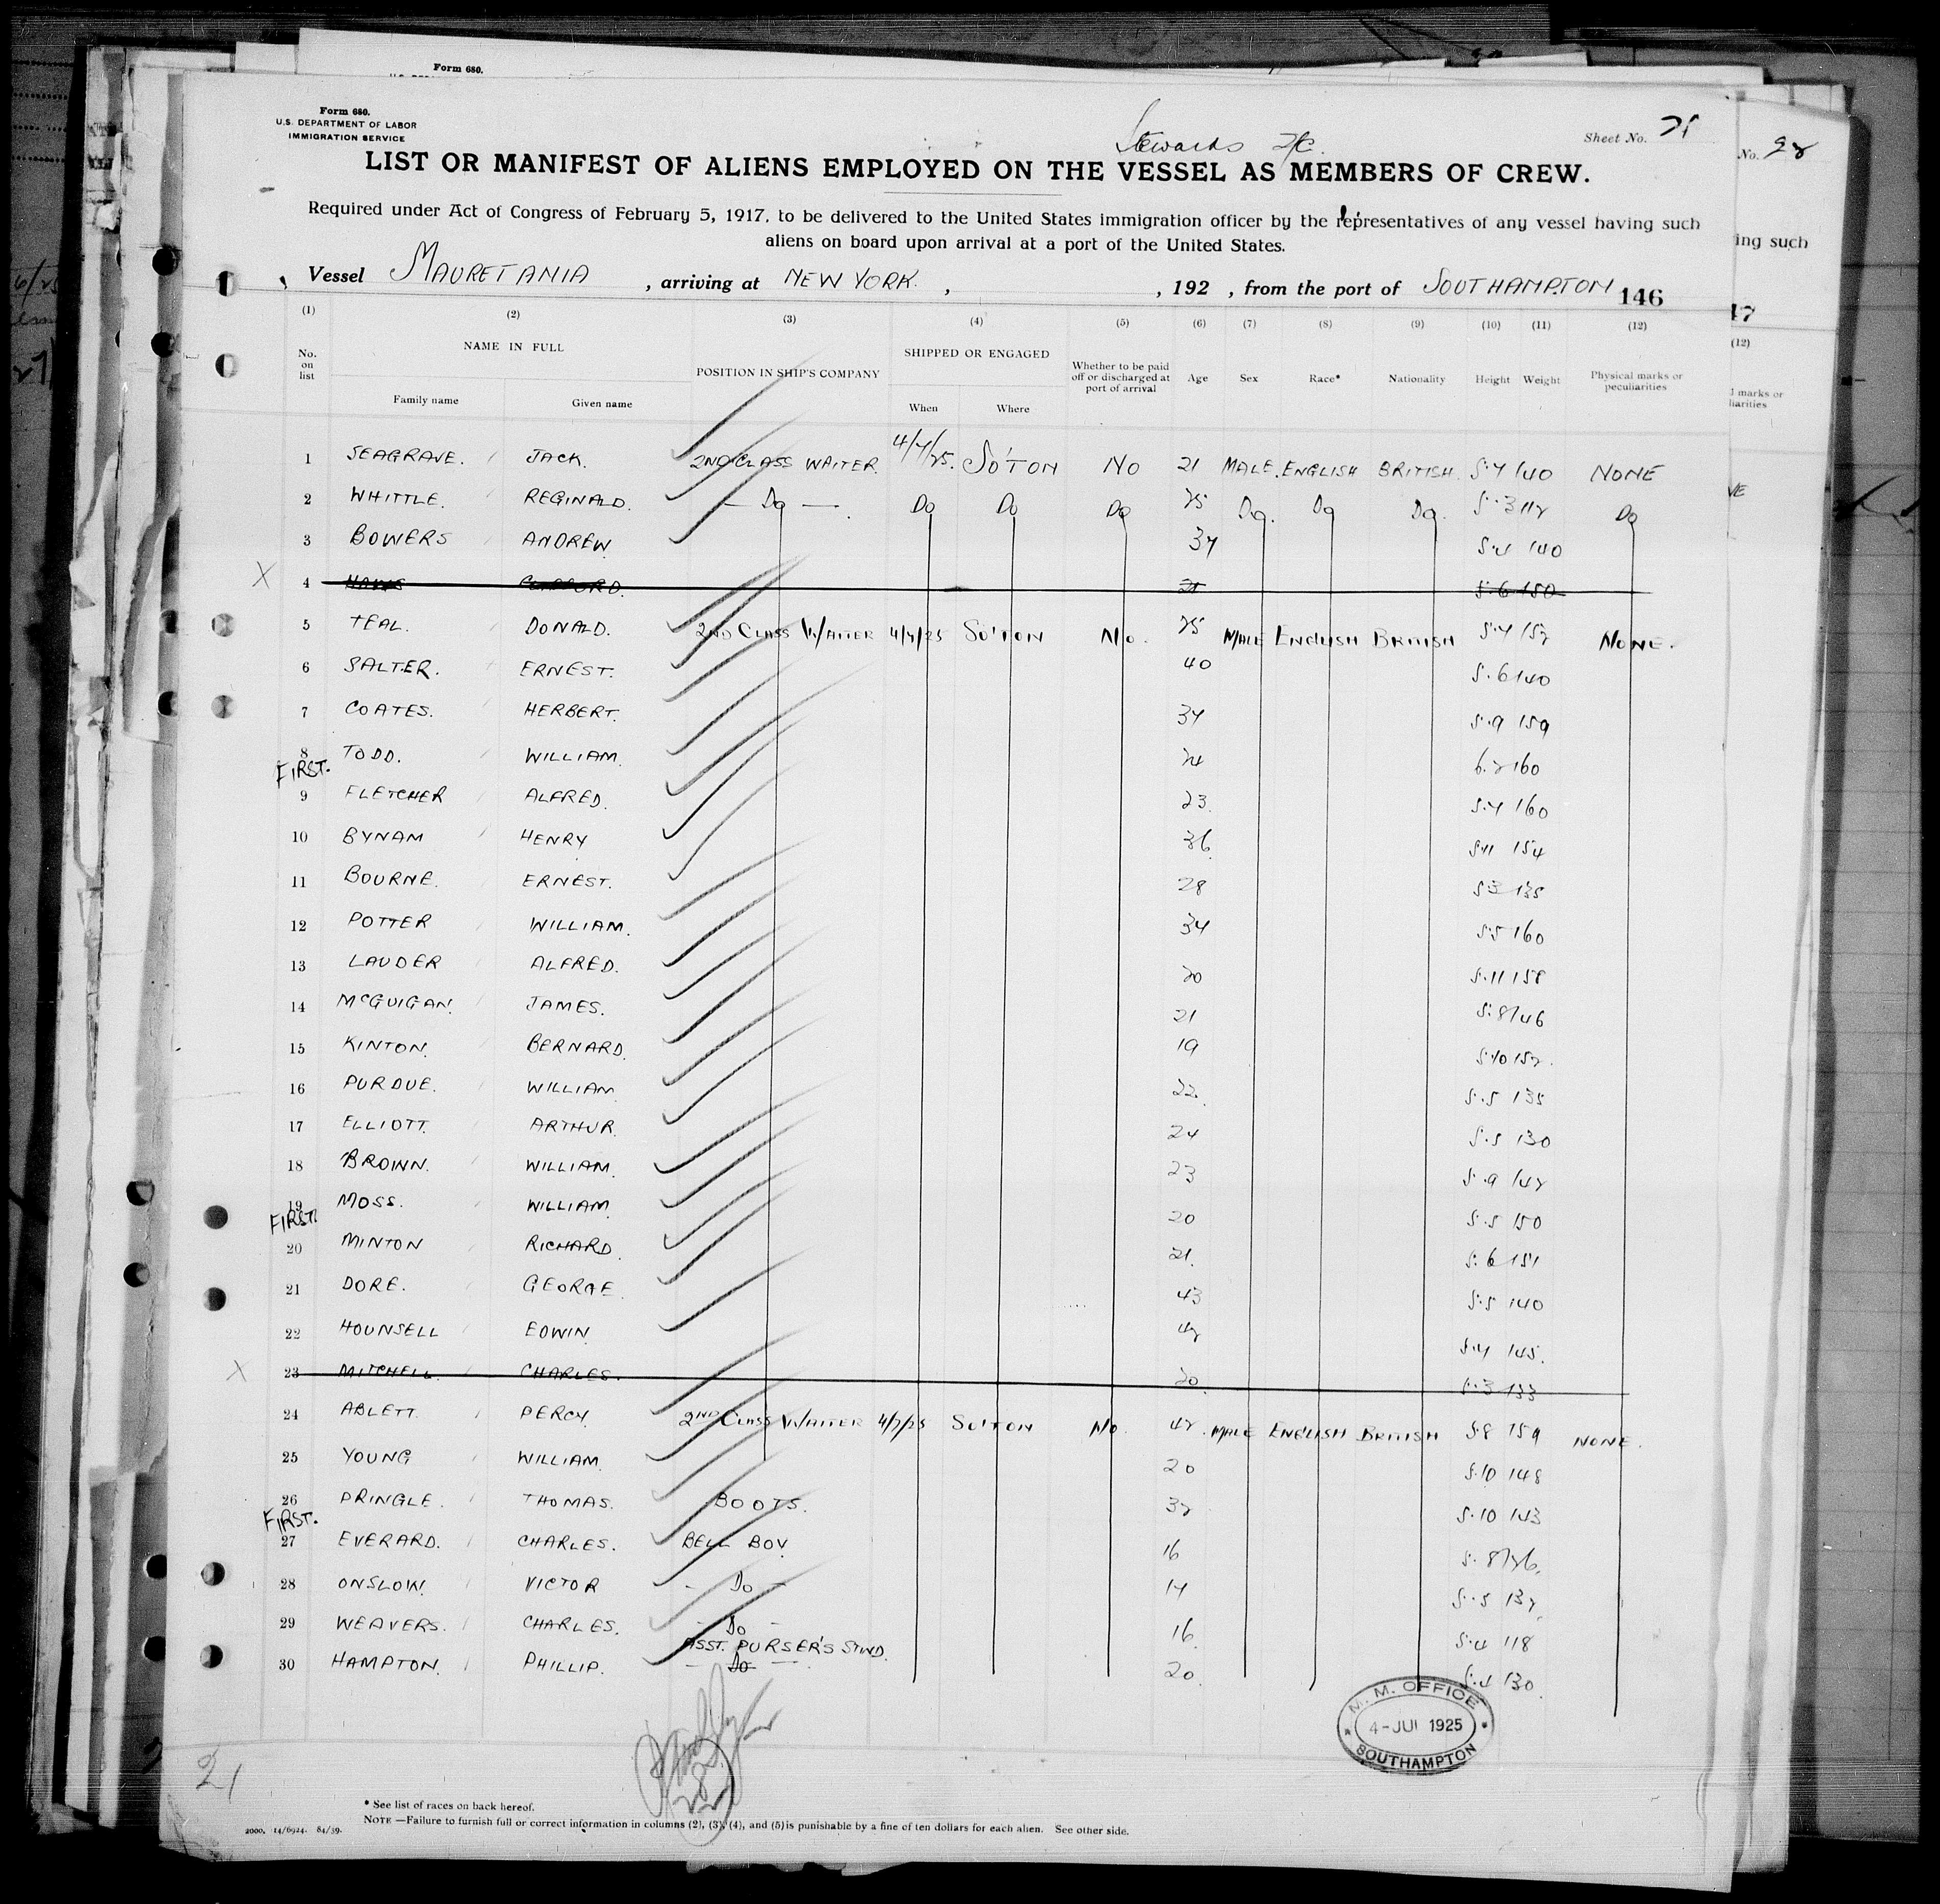 Form 680.
Form 680.
U.S. DEPARTMENT OF LABOR
IMMIGRATION SERVICE
Stewards
Sheet No. 21
No.
LIST OR MANIFEST OF ALIENS EMPLOYED ON THE VESSEL AS MEMBERS OF CREW.
Required under Act of Congress of February 5, 1917, to be delivered to the United States immigration officer by the representatives of any vessel having such
aliens on board upon arrival at a port of the United States.
ing such
Vessel MAURETANIA, arriving at NEW YORK. , , 192 , from the port of SOUTHAMPTON 146
(1) (2) (3) (4) (5) (6) (7) (8) (9) (10) (11) (12)
(12)
No. on list NAME IN FULL POSITION IN SHIP'S COMPANY SHIPPED OR ENGAGED Whether to be paid off or discharged at port of arrival Age Sex Race* Nationality Height Weight Physical marks or peculiarities
Family name Given name When Where
1 SEAGRAVE. JACK. 2ND CLASS WAITER. 4/7/25. SO'TON NO 21 MALE. ENGLISH BRITISH. 5.7 140 NONE
2 WHITTLE. REGINALD. — Do — Do Do Do 25 Do. Do Do. 5.3 112 Do
3 BOWERS ANDREW. 37 5.4 140
4 5.6 150
5 TEAL. DONALD. 2ND CLASS WAITER 4/7/25 SO'TON No. 25 MALE ENGLISH BRITISH 5.7 152 NONE.
6 SALTER. ERNEST. 40 5.6 140
7 COATES. HERBERT. 37 5.9 159
8 TODD. WILLIAM. 24 6.2 160
FIRST.
9 FLETCHER ALFRED. 23. 5.7 160
10 BYNAM HENRY 36. 5.11 154
11 BOURNE. ERNEST. 28 5.3 135
12 POTTER WILLIAM. 37 5.5 160
13 LAUDER ALFRED. 20 5.11 158
14 McGUIGAN. JAMES. 21 5.8 146
15 KINTON. BERNARD. 19 5.10 152.
16 PURDUE. WILLIAM. 22. 5.5 135
17 ELLIOTT. ARTHUR. 24 5.5 130
18 BROWN. WILLIAM. 23 5.9 142
19 MOSS. WILLIAM 20 5.5 150
FIRST.
20 MINTON RICHARD. 21. 5.6 151
21 DORE. GEORGE. 43 5.5 140
22 HOUNSELL EDWIN. 42 5.7 145.
23 MITCHELL. CHARLES. 20. 5.3 133
24 ABLETT. PERCY. 2ND CLASS WAITER 4/7/25 SO'TON No. 42. MALE ENGLISH BRITISH 5.8 159 NONE.
25 YOUNG WILLIAM. 20 5.10 148
26 PRINGLE. THOMAS. BOOTS. 32 5.10 143
FIRST.
27 EVERARD. CHARLES. BELL BOY. 16 5.8 126.
28 ONSLOW. VICTOR - Do - 17 5.5 137.
29 WEAVERS. CHARLES. - Do - 16. 5.4 118
ASST. PURSER'S STWD.
30 HAMPTON. PHILLIP. — Do — 20. 5.4 130.
M. M. OFFICE
4-JUL 1925
SOUTHAMPTON
21
* See list of races on back hereof.
NOTE —Failure to furnish full or correct information in columns (2), (3), (4), and (5) is punishable by a fine of ten dollars for each alien. See other side.
2000. 14/6924. 84/39.